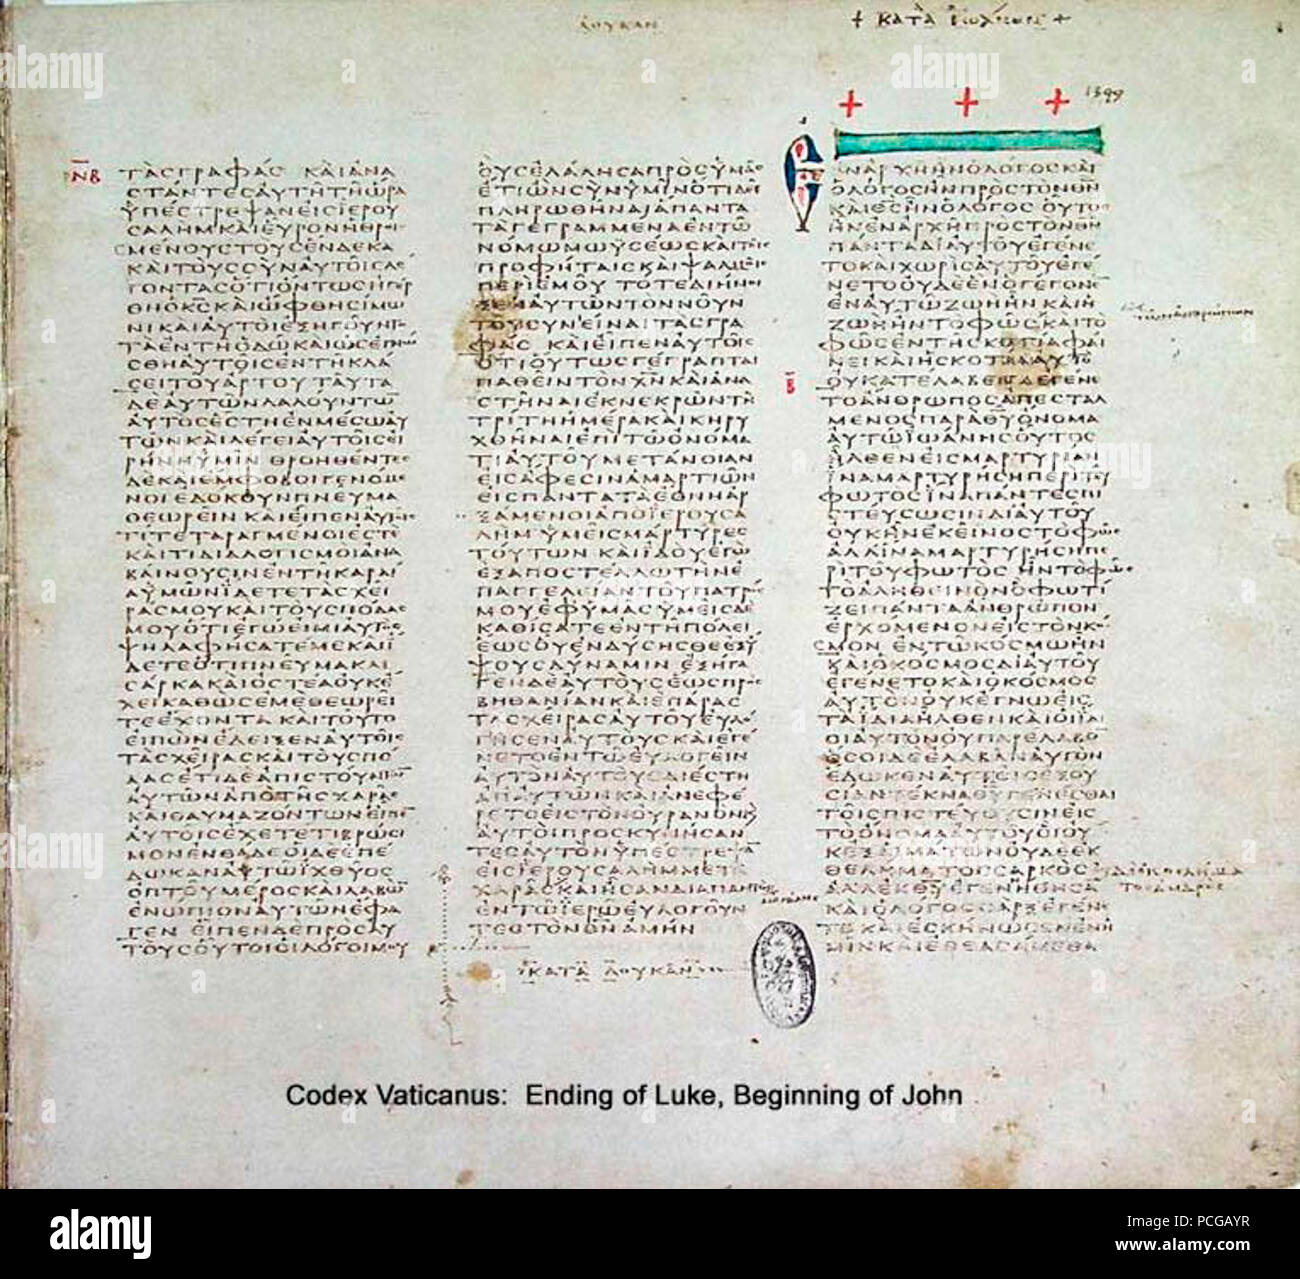 ΛΟΥΚΑΝ
+ ΚΑΤΑ ΙΩΑΝΝΗΝ +
1349
ΝΒ
ΤΑΣ ΓΡΑΦΑΣ ΚΑΙ ΑΝΑ
ΣΤΑΝΤΕΣ ΑΥΤΗ ΤΗ ΩΡΑ
ΥΠΕΣΤΡΕΨΑΝ ΕΙΣ ΙΕΡΟΥ
ΣΑΛΗΜ ΚΑΙ ΕΥΡΟΝ ΗΘΡΟΙ
ΣΜΕΝΟΥΣ ΤΟΥΣ ΕΝΔΕΚΑ
ΚΑΙ ΤΟΥΣ ΣΥΝ ΑΥΤΟΙΣ ΛΕ
ΓΟΝΤΑΣ ΟΤΙ ΟΝΤΩΣ ΗΓΕΡ
ΘΗ Ο ΚΣ ΚΑΙ ΩΦΘΗ ΣΙΜΩ
ΝΙ ΚΑΙ ΑΥΤΟΙ ΕΞΗΓΟΥΝΤΟ
ΤΑ ΕΝ ΤΗ ΟΔΩ ΚΑΙ ΩΣ ΕΓΝΩ
ΣΘΗ ΑΥΤΟΙΣ ΕΝ ΤΗ ΚΛΑ
ΣΕΙ ΤΟΥ ΑΡΤΟΥ ΤΑΥΤΑ
ΔΕ ΑΥΤΩΝ ΛΑΛΟΥΝΤΩ
ΑΥΤΟΣ ΕΣΤΗ ΕΝ ΜΕΣΩ ΑΥ
ΤΩΝ ΚΑΙ ΛΕΓΕΙ ΑΥΤΟΙΣ ΕΙ
ΡΗΝΗ ΥΜΙΝ ΘΡΟΗΘΕΝΤΕΣ
ΔΕ ΚΑΙ ΕΜΦΟΒΟΙ ΓΕΝΟΜΕ
ΝΟΙ ΕΔΟΚΟΥΝ ΠΝΕΥΜΑ
ΘΕΩΡΕΙΝ ΚΑΙ ΕΙΠΕΝ ΑΥΤΟΙΣ
ΤΙ ΤΕΤΑΡΑΓΜΕΝΟΙ ΕΣΤΕ
ΚΑΙ ΤΙ ΔΙΑΛΟΓΙΣΜΟΙ ΑΝΑ
ΒΑΙΝΟΥΣΙΝ ΕΝ ΤΗ ΚΑΡΔΙ
Α ΥΜΩΝ ΙΔΕΤΕ ΤΑΣ ΧΕΙ
ΡΑΣ ΜΟΥ ΚΑΙ ΤΟΥΣ ΠΟΔΑΣ
ΜΟΥ ΟΤΙ ΕΓΩ ΕΙΜΙ ΑΥΤΟΣ
ΨΗΛΑΦΗΣΑΤΕ ΜΕ ΚΑΙ Ι
ΔΕΤΕ ΟΤΙ ΠΝΕΥΜΑ ΚΑΙ
ΣΑΡΚΑ ΚΑΙ ΟΣΤΕΑ ΟΥΚ Ε
ΧΕΙ ΚΑΘΩΣ ΕΜΕ ΘΕΩΡΕΙ
ΤΕ ΕΧΟΝΤΑ ΚΑΙ ΤΟΥΤΟ
ΕΙΠΩΝ ΕΔΕΙΞΕΝ ΑΥΤΟΙΣ
ΤΑΣ ΧΕΙΡΑΣ ΚΑΙ ΤΟΥΣ ΠΟ
ΔΑΣ ΕΤΙ ΔΕ ΑΠΙΣΤΟΥΝΤΩ
ΑΥΤΩΝ ΑΠΟ ΤΗΣ ΧΑΡΑΣ
ΚΑΙ ΘΑΥΜΑΖΟΝΤΩΝ ΕΙΠΕ
ΑΥΤΟΙΣ ΕΧΕΤΕ ΤΙ ΒΡΩΣΙ
ΜΟΝ ΕΝΘΑΔΕ ΟΙ ΔΕ ΕΠΕ
ΔΩΚΑΝ ΑΥΤΩ ΙΧΘΥΟΣ
ΟΠΤΟΥ ΜΕΡΟΣ ΚΑΙ ΛΑΒΩ
ΕΝΩΠΙΟΝ ΑΥΤΩΝ ΕΦΑ
ΓΕΝ ΕΙΠΕΝ ΔΕ ΠΡΟΣ ΑΥ
ΤΟΥΣ ΟΥΤΟΙ ΟΙ ΛΟΓΟΙ ΜΟΥ
ΟΥΣ ΕΛΑΛΗΣΑ ΠΡΟΣ ΥΜΑΣ
ΕΤΙ ΩΝ ΣΥΝ ΥΜΙΝ ΟΤΙ ΔΕΙ
ΠΛΗΡΩΘΗΝΑΙ ΑΠΑΝΤΑ
ΤΑ ΓΕΓΡΑΜΜΕΝΑ ΕΝ ΤΩ
ΝΟΜΩ ΜΩΥΣΕΩΣ ΚΑΙ ΤΟΙΣ
ΠΡΟΦΗΤΑΙΣ ΚΑΙ ΨΑΛΜΟΙΣ
ΠΕΡΙ ΕΜΟΥ ΤΟΤΕ ΔΙΗΝΟΙ
ΞΕΝ ΑΥΤΩΝ ΤΟΝ ΝΟΥΝ
ΤΟΥ ΣΥΝΕΙΝΑΙ ΤΑΣ ΓΡΑ
ΦΑΣ ΚΑΙ ΕΙΠΕΝ ΑΥΤΟΙΣ
ΟΤΙ ΟΥΤΩΣ ΓΕΓΡΑΠΤΑΙ
ΠΑΘΕΙΝ ΤΟΝ ΧΝ ΚΑΙ ΑΝΑ
ΣΤΗΝΑΙ ΕΚ ΝΕΚΡΩΝ ΤΗ
ΤΡΙΤΗ ΗΜΕΡΑ ΚΑΙ ΚΗΡΥ
ΧΘΗΝΑΙ ΕΠΙ ΤΩ ΟΝΟΜΑ
ΤΙ ΑΥΤΟΥ ΜΕΤΑΝΟΙΑΝ
ΕΙΣ ΑΦΕΣΙΝ ΑΜΑΡΤΙΩΝ
ΕΙΣ ΠΑΝΤΑ ΤΑ ΕΘΝΗ ΑΡ
ΞΑΜΕΝΟΙ ΑΠΟ ΙΕΡΟΥΣΑ
ΛΗΜ ΥΜΕΙΣ ΜΑΡΤΥΡΕΣ
ΤΟΥΤΩΝ ΚΑΙ ΙΔΟΥ ΕΓΩ
ΕΞΑΠΟΣΤΕΛΛΩ ΤΗΝ Ε
ΠΑΓΓΕΛΕΙΑΝ ΤΟΥ ΠΑΤΡΟΣ
ΜΟΥ ΕΦ ΥΜΑΣ ΥΜΕΙΣ ΔΕ
ΚΑΘΙΣΑΤΕ ΕΝ ΤΗ ΠΟΛΕΙ
ΕΩΣ ΟΥ ΕΝΔΥΣΗΣΘΕ ΕΞ Υ
ΨΟΥΣ ΔΥΝΑΜΙΝ ΕΞΗΓΑ
ΓΕΝ ΔΕ ΑΥΤΟΥΣ ΕΩΣ ΠΡΟΣ
ΒΗΘΑΝΙΑΝ ΚΑΙ ΕΠΑΡΑΣ
ΤΑΣ ΧΕΙΡΑΣ ΑΥΤΟΥ ΕΥΛΟ
ΓΗΣΕΝ ΑΥΤΟΥΣ ΚΑΙ ΕΓΕ
ΝΕΤΟ ΕΝ ΤΩ ΕΥΛΟΓΕΙΝ
ΑΥΤΟΝ ΑΥΤΟΥΣ ΔΙΕΣΤΗ
ΑΠ ΑΥΤΩΝ ΚΑΙ ΑΝΕΦΕ
ΡΕΤΟ ΕΙΣ ΤΟΝ ΟΥΡΑΝΟΝ Κ
ΑΥΤΟΙ ΠΡΟΣΚΥΝΗΣΑΝ
ΤΕΣ ΑΥΤΟΝ ΥΠΕΣΤΡΕΨΑ
ΕΙΣ ΙΕΡΟΥΣΑΛΗΜ ΜΕΤΑ
ΧΑΡΑΣ ΚΑΙ ΗΣΑΝ ΔΙΑ ΠΑΝΤΟΣ
ΕΝ ΤΩ ΙΕΡΩ ΕΥΛΟΓΟΥΝ
ΤΕΣ ΤΟΝ ΘΝ ΑΜΗΝ
ΚΑΤΑ ΛΟΥΚΑΝ
ΕΝ ΑΡΧΗ ΗΝ Ο ΛΟΓΟΣ ΚΑΙ
Ο ΛΟΓΟΣ ΗΝ ΠΡΟΣ ΤΟΝ ΘΝ
ΚΑΙ ΘΣ ΗΝ Ο ΛΟΓΟΣ ΟΥΤΟΣ
ΗΝ ΕΝ ΑΡΧΗ ΠΡΟΣ ΤΟΝ ΘΝ
ΠΑΝΤΑ ΔΙ ΑΥΤΟΥ ΕΓΕΝΕ
ΤΟ ΚΑΙ ΧΩΡΙΣ ΑΥΤΟΥ ΕΓΕ
ΝΕΤΟ ΟΥΔΕ ΕΝ Ο ΓΕΓΟΝΕΝ
ΕΝ ΑΥΤΩ ΖΩΗ ΗΝ ΚΑΙ Η
ΖΩΗ ΗΝ ΤΟ ΦΩΣ ΚΑΙ ΤΟ
ΤΩΝ ΑΝΘΡΩΠΩΝ
ΦΩΣ ΕΝ ΤΗ ΣΚΟΤΙΑ ΦΑΙ
ΝΕΙ ΚΑΙ Η ΣΚΟΤΙΑ ΑΥΤΟ
Β
ΟΥ ΚΑΤΕΛΑΒΕΝ ΕΓΕΝΕ
ΤΟ ΑΝΘΡΩΠΟΣ ΑΠΕΣΤΑΛ
ΜΕΝΟΣ ΠΑΡΑ ΘΥ ΟΝΟΜΑ
ΑΥΤΩ ΙΩΑΝΗΣ ΟΥΤΟΣ
ΗΛΘΕΝ ΕΙΣ ΜΑΡΤΥΡΙΑΝ
ΙΝΑ ΜΑΡΤΥΡΗΣΗ ΠΕΡΙ ΤΟΥ
ΦΩΤΟΣ ΙΝΑ ΠΑΝΤΕΣ ΠΙ
ΣΤΕΥΣΩΣΙΝ ΔΙ ΑΥΤΟΥ
ΟΥΚ ΗΝ ΕΚΕΙΝΟΣ ΤΟ ΦΩΣ
ΑΛΛ ΙΝΑ ΜΑΡΤΥΡΗΣΗ ΠΕ
ΡΙ ΤΟΥ ΦΩΤΟΣ ΗΝ ΤΟ ΦΩΣ
ΤΟ ΑΛΗΘΕΙΝΟΝ Ο ΦΩΤΙ
ΖΕΙ ΠΑΝΤΑ ΑΝΘΡΩΠΟΝ
ΕΡΧΟΜΕΝΟΝ ΕΙΣ ΤΟΝ ΚΟ
ΣΜΟΝ ΕΝ ΤΩ ΚΟΣΜΩ ΗΝ
ΚΑΙ Ο ΚΟΣΜΟΣ ΔΙ ΑΥΤΟΥ
ΕΓΕΝΕΤΟ ΚΑΙ Ο ΚΟΣΜΟΣ
ΑΥΤΟΝ ΟΥΚ ΕΓΝΩ ΕΙΣ
ΤΑ ΙΔΙΑ ΗΛΘΕΝ ΚΑΙ ΟΙ ΙΔΙ
ΟΙ ΑΥΤΟΝ ΟΥ ΠΑΡΕΛΑΒΟ
ΟΣΟΙ ΔΕ ΕΛΑΒΑΝ ΑΥΤΟΝ
ΕΔΩΚΕΝ ΑΥΤΟΙΣ ΕΞΟΥ
ΣΙΑΝ ΤΕΚΝΑ ΘΥ ΓΕΝΕΣΘΑΙ
ΤΟΙΣ ΠΙΣΤΕΥΟΥΣΙΝ ΕΙΣ
ΤΟ ΟΝΟΜΑ ΑΥΤΟΥ ΟΙ ΟΥ
Κ ΕΞ ΑΙΜΑΤΩΝ ΟΥΔΕ ΕΚ
ΘΕΛΗΜΑΤΟΣ ΣΑΡΚΟΣ
ΑΛΛ ΕΚ ΘΥ ΕΓΕΝΗΘΗΣΑ
ΚΑΙ Ο ΛΟΓΟΣ ΣΑΡΞ ΕΓΕΝΕ
ΤΟ ΚΑΙ ΕΣΚΗΝΩΣΕΝ ΕΝ Η
ΜΙΝ ΚΑΙ ΕΘΕΑΣΑΜΕΘΑ
Codex Vaticanus: Ending of Luke, Beginning of John
alamy
alamy
Image ID: PCGAYR
www.alamy.com